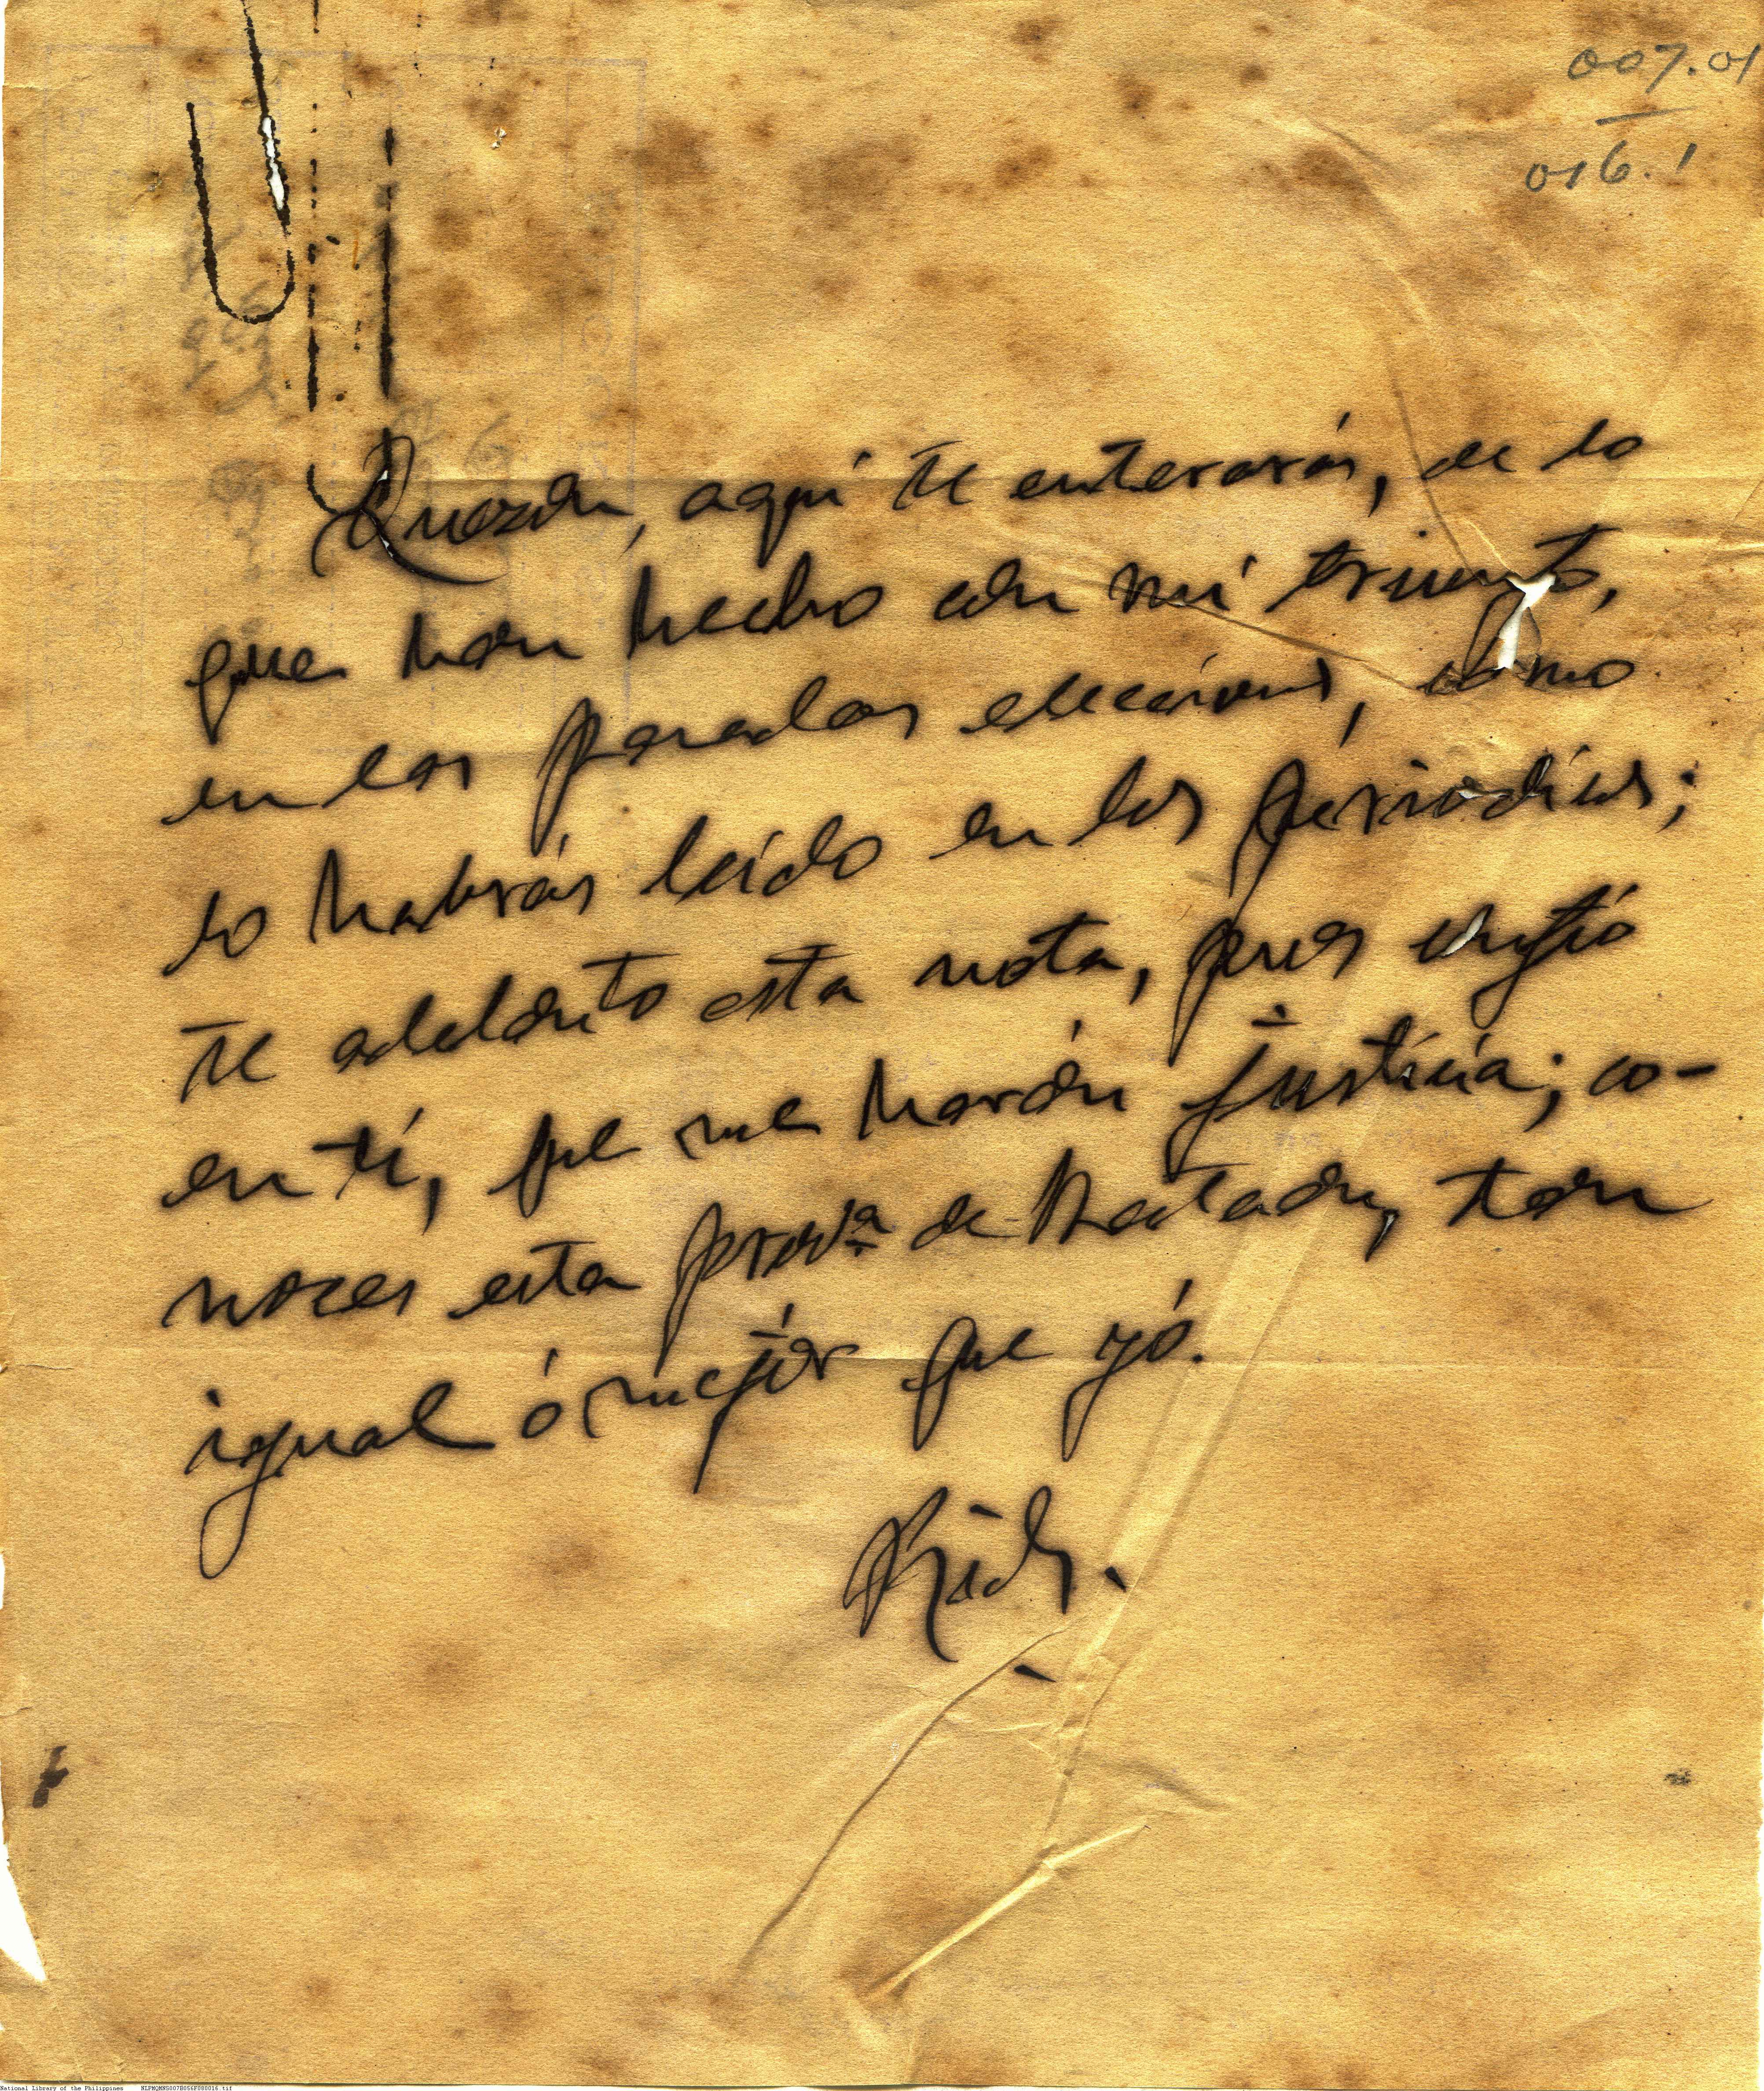 007.01
016.1
Quezon, aquí te enterarás, de lo
que han hecho con mi triunfo,
en las pasadas elecciones, como
lo habrás leído en los periódicos;
te adelanto esta nota, pues confío
en tí, que me harán justicia; co-
noces esta provª de Bataan, tan
igual ó mejor que yó.
National Library of the Philippines NLPMQMNS007B056F080016.tif